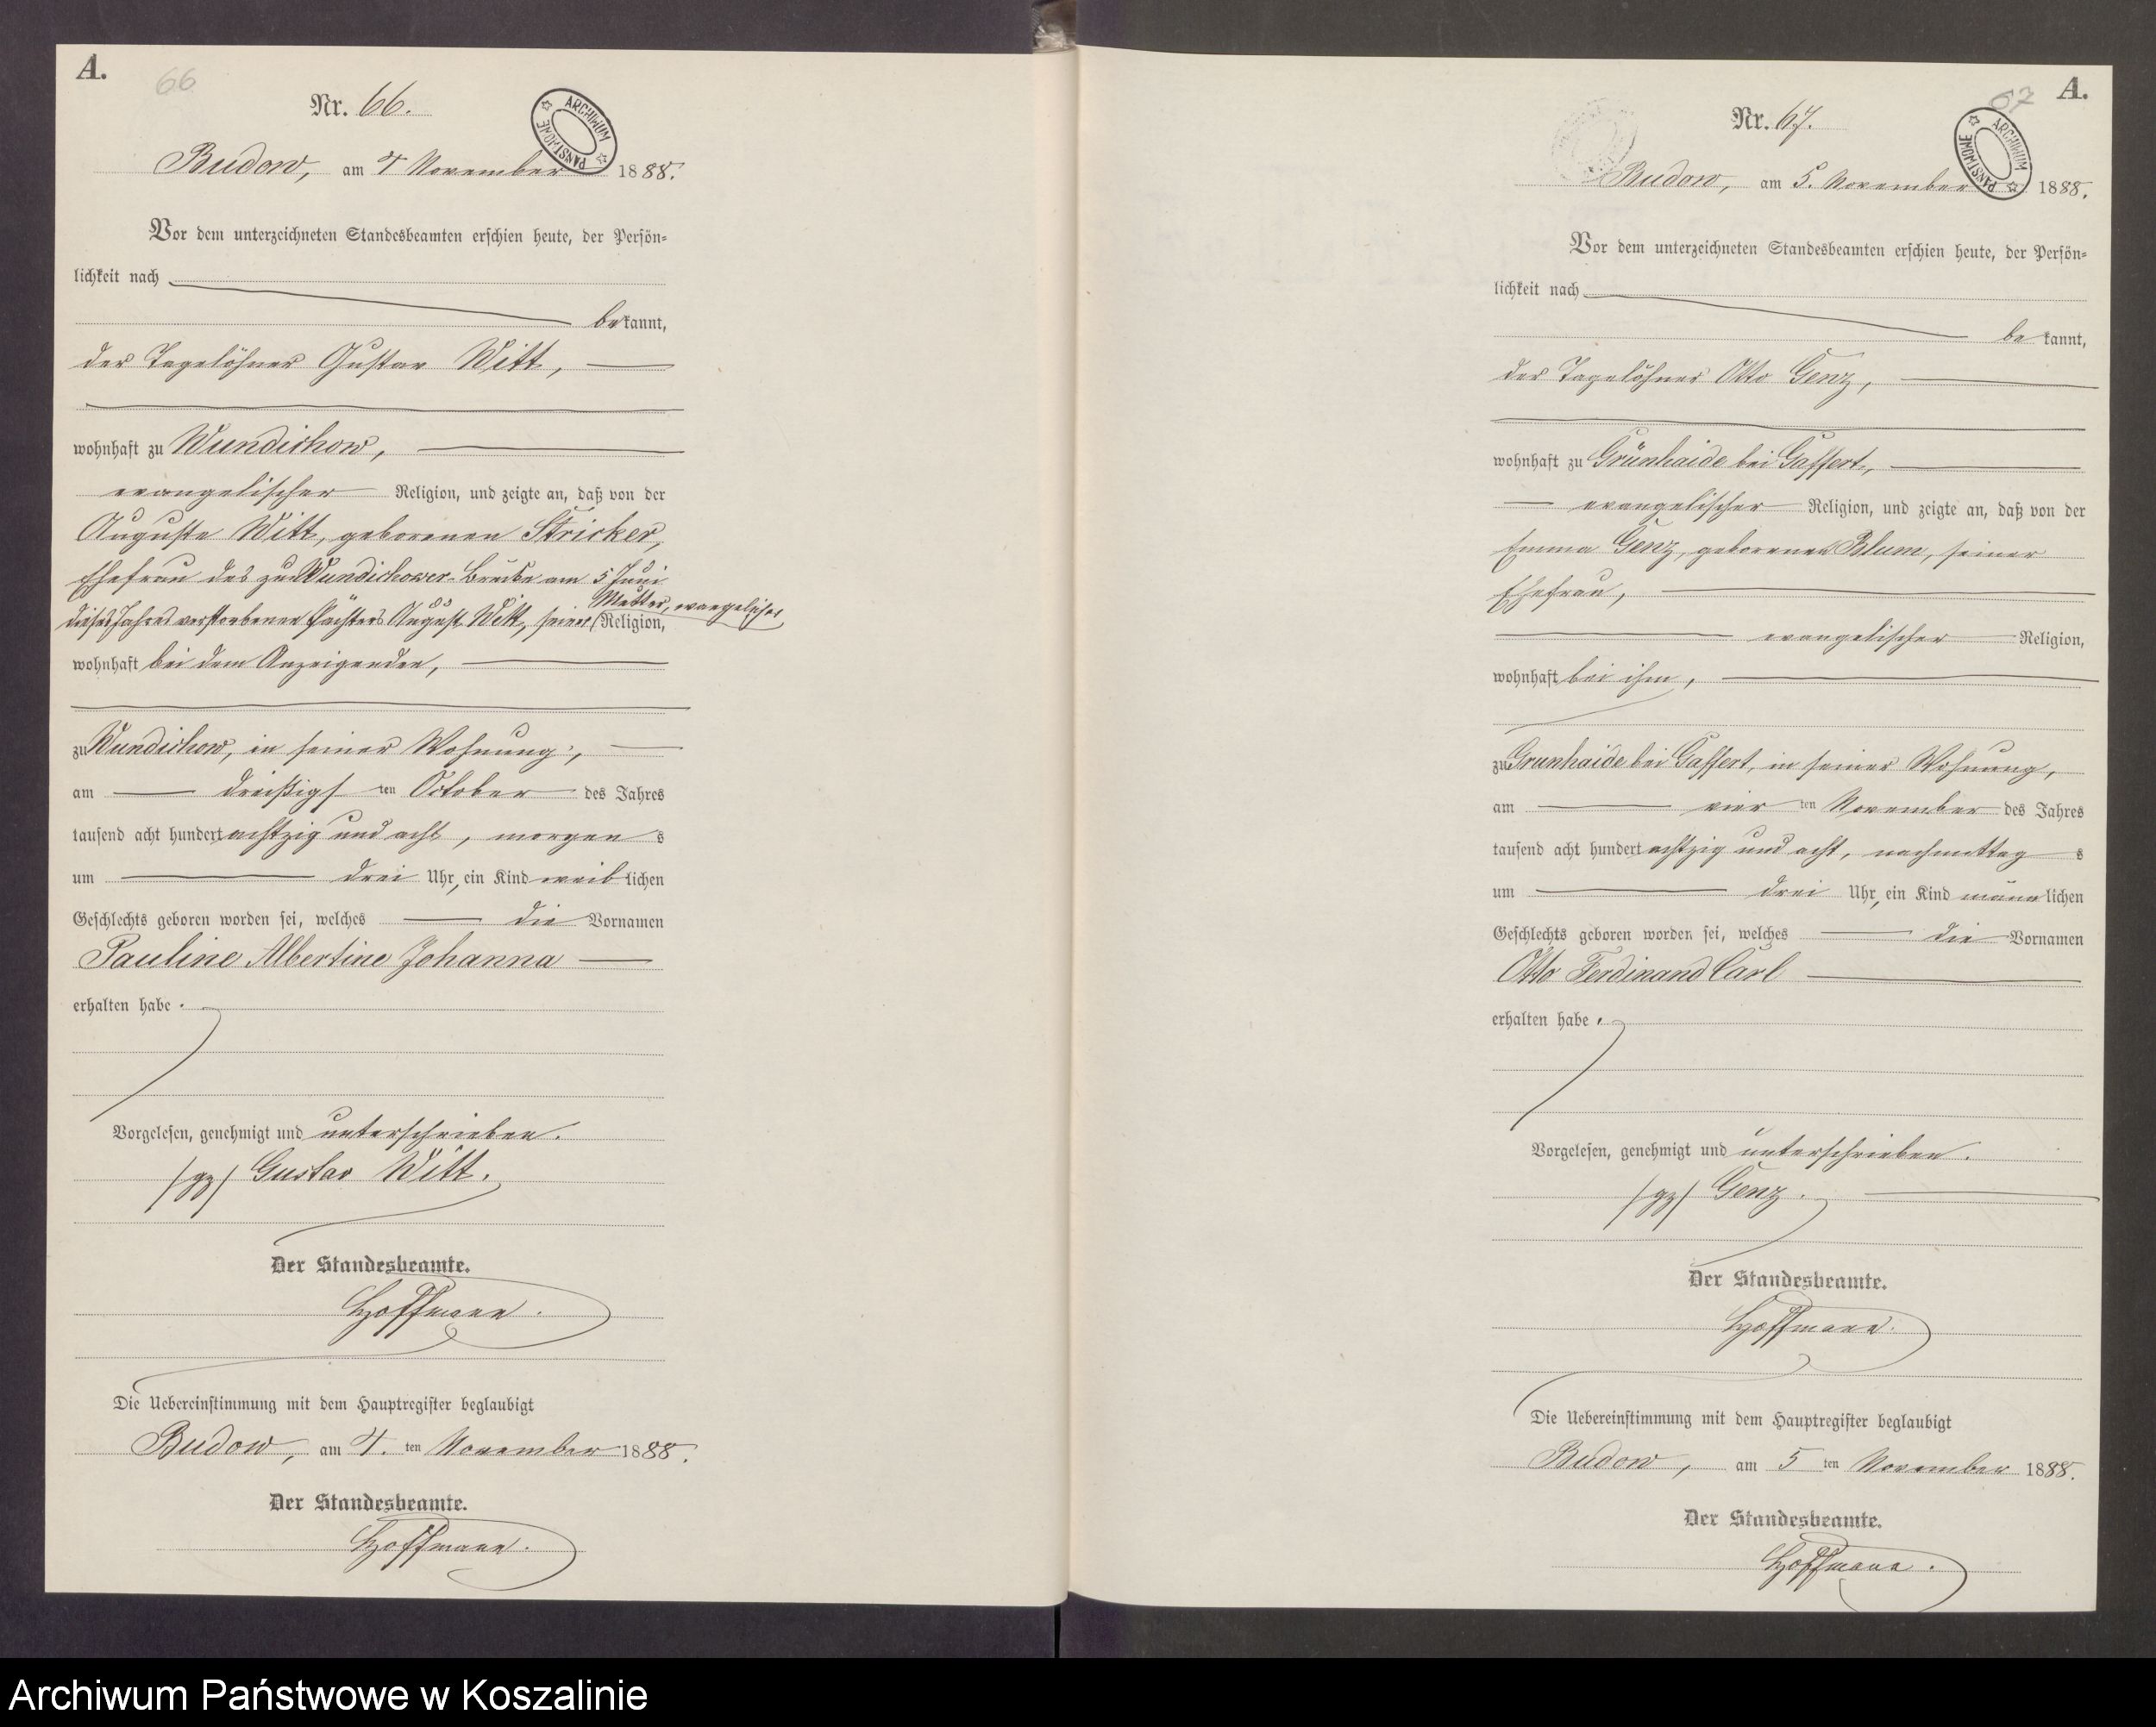 A.
66
Nr. 66.
ARCHIWUM PAŃSTWOWE
Budow, am 4 November 1888.
Vor dem unterzeichneten Standesbeamten erschien heute, der Persön=
lichkeit nach
bekannt,
der Tagelöhner Gustav Witt,
wohnhaft zu Wundichow,
evangelischer Religion, und zeigte an, daß von der
Auguste Witt, geborenen Stricker,
Ehefrau des zu Wundichower-Brücke am 5 Juni
dieses Jahres verstorbenen Pächters August Witt, seiner Mutter, evangelischer
Religion,
wohnhaft bei dem Anzeigenden,
zu Wundichow, in seiner Wohnung,
am dreißigsten October des Jahres
tausend acht hundert achtzig und acht, morgens
um drei Uhr, ein Kind weiblichen
Geschlechts geboren worden sei, welches die Vornamen
Pauline Albertine Johanna
erhalten habe.
Vorgelesen, genehmigt und unterschrieben.
/gz/ Gustav Witt.
Der Standesbeamte.
Hoffmann.
Die Uebereinstimmung mit dem Hauptregister beglaubigt
Budow, am 4. ten November 1888.
Der Standesbeamte.
Hoffmann.
A.
67
Nr. 67.
ARCHIWUM PAŃSTWOWE
Budow, am 5. November 1888.
Vor dem unterzeichneten Standesbeamten erschien heute, der Persön=
lichkeit nach
bekannt,
der Tagelöhner Otto Genz,
wohnhaft zu Grünhaide bei Gaffert,
evangelischer Religion, und zeigte an, daß von der
Emma Genz, geborenen Blum, seiner
Ehefrau,
evangelischer Religion,
wohnhaft bei ihm,
zu Grunhaide bei Gaffert, in seiner Wohnung,
am vier ten November des Jahres
tausend acht hundert achtzig und acht, nachmittags
um drei Uhr, ein Kind männlichen
Geschlechts geboren worden sei, welches die Vornamen
Otto Ferdinand Carl
erhalten habe.
Vorgelesen, genehmigt und unterschrieben.
/gz/ Genz.
Der Standesbeamte.
Hoffmann.
Die Uebereinstimmung mit dem Hauptregister beglaubigt
Budow, am 5 ten November 1888.
Der Standesbeamte.
Hoffmann.
Archiwum Państwowe w Koszalinie